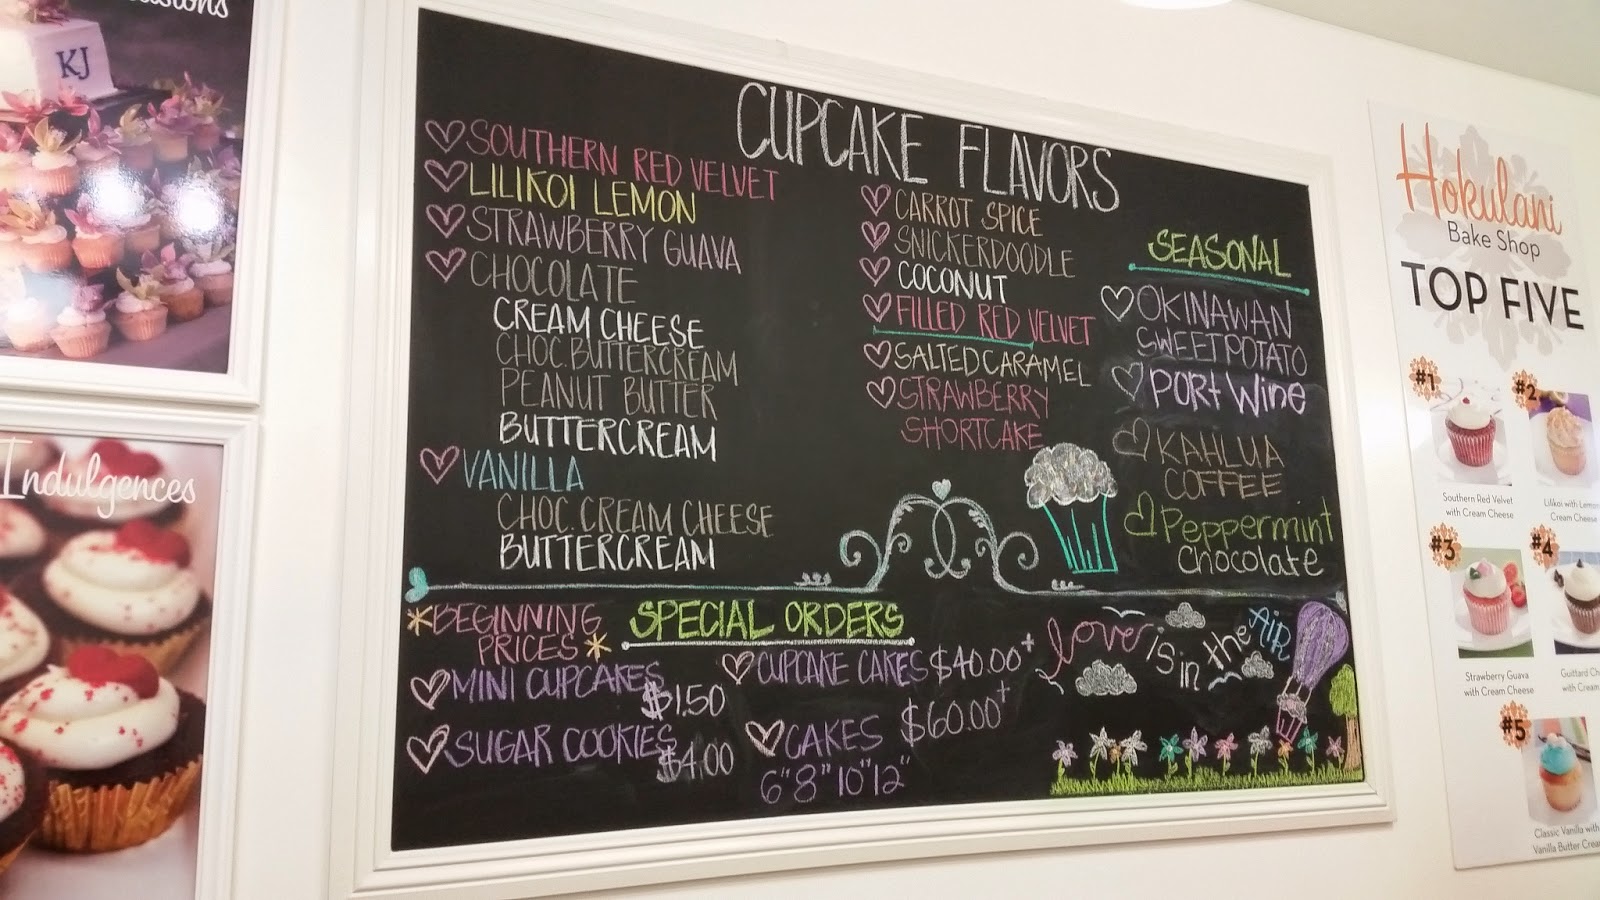 KJ
Indulgences
CUPCAKE FLAVORS
SOUTHERN RED VELVET
LILIKOI LEMON
STRAWBERRY GUAVA
CHOCOLATE
CREAM CHEESE
CHOC. BUTTERCREAM
PEANUT BUTTER
BUTTERCREAM
VANILLA
CHOC. CREAM CHEESE
BUTTERCREAM
CARROT SPICE
SNICKERDOODLE
COCONUT
FILLED RED VELVET
SALTED CARAMEL
STRAWBERRY
SHORTCAKE
SEASONAL
OKINAWAN
SWEET POTATO
PORT WINE
KAHLUA
COFFEE
Peppermint
Chocolate
*BEGINNING
PRICES*
SPECIAL ORDERS
MINI CUPCAKES
$1.50
SUGAR COOKIES
$4.00
CUPCAKE CAKES $40.00+
CAKES $60.00+
6" 8" 10" 12"
love is in the AIR
Hokulani
Bake Shop
TOP FIVE
#1
Southern Red Velvet
with Cream Cheese
#2
Lilikoi with Lemon
Cream Cheese
#3
Strawberry Guava
with Cream Cheese
#4
Guittard
with Cream
#5
Classic Vanilla
Vanilla Butter